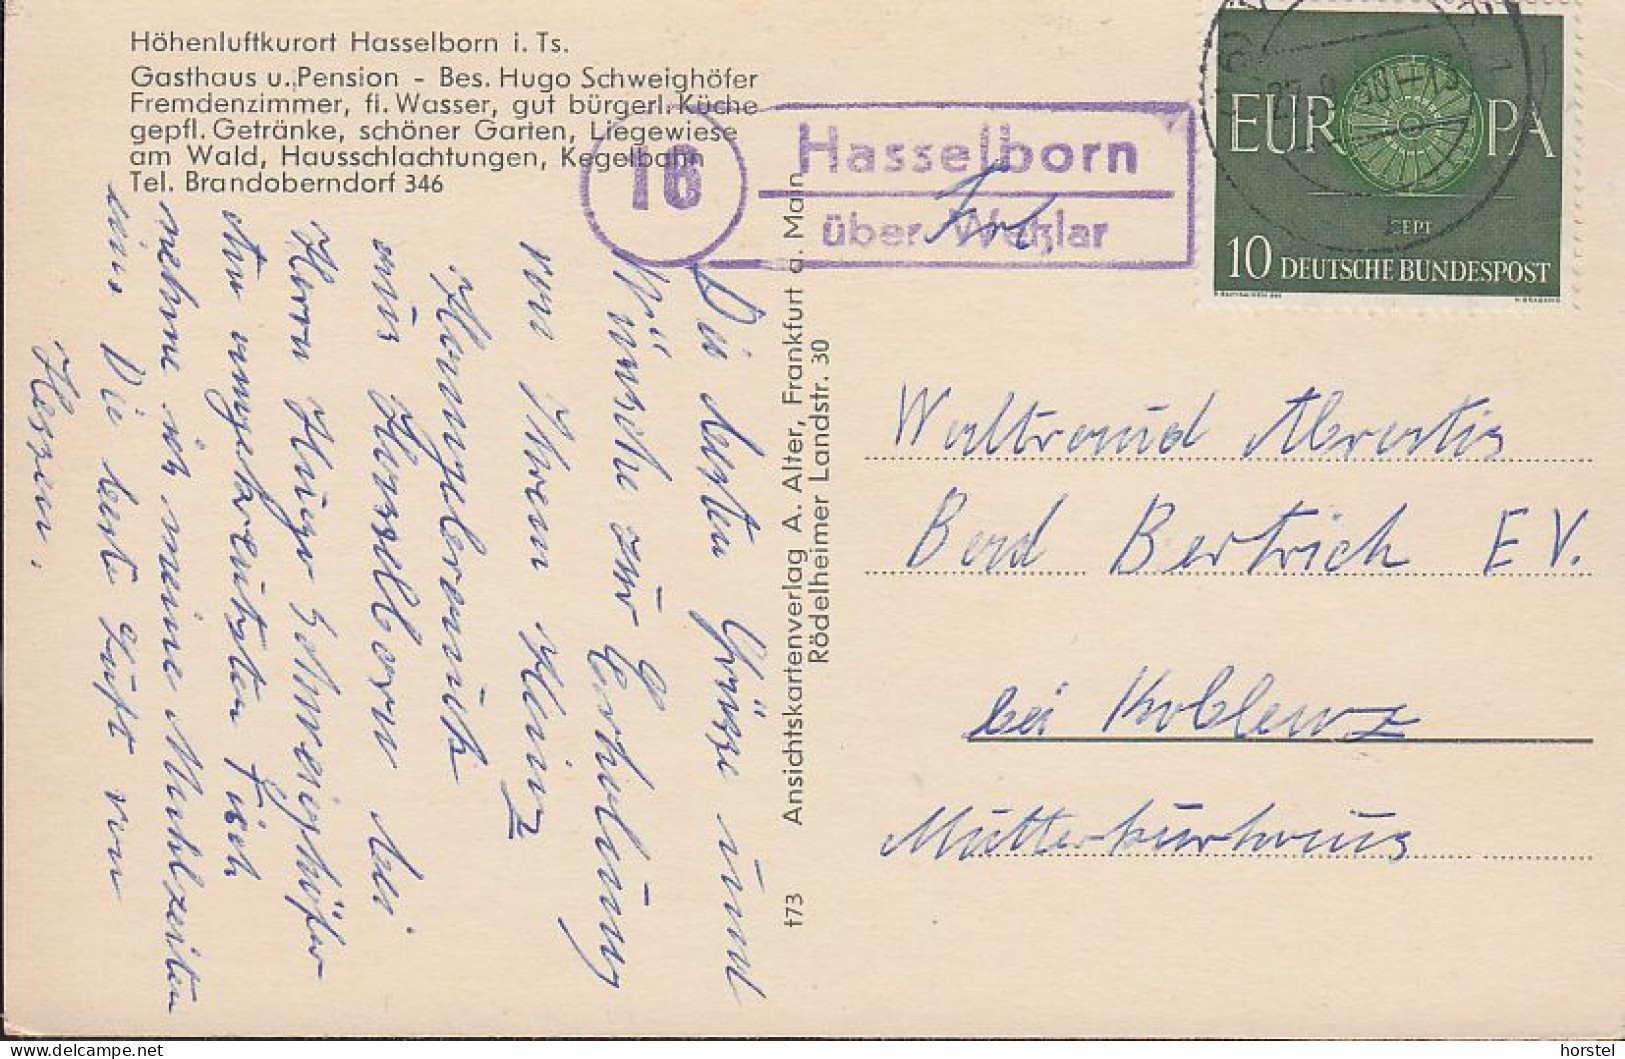 Höhenluftkurort Hasselborn i. Ts.
Gasthaus u. Pension - Bes. Hugo Schweighöfer
Fremdenzimmer, fl. Wasser, gut bürgerl. Küche
gepfl. Getränke, schöner Garten, Liegewiese
am Wald, Hausschlachtungen, Kegelbahn
Tel. Brandoberndorf 346
16
Hasselborn
über Wetzlar
EUROPA
CEPT
10 DEUTSCHE BUNDESPOST
Die besten Grüsse und
Wünsche zur Erholung
von Ihrem Heinz
aus Hasselborn bei
Herrn Hugo Schweighöfer
An angekreutzten Tisch
nehme ich meine Mahlzeiten
ein. Die beste Luft von
Hessen.
Ansichtskartenverlag A. Alter, Frankfurt a. Main
Rödelheimer Landstr. 30
t73
Waltraud
Bad Bertrich E V.
bei Koblenz
Mütterkurhaus
horstel
the-collection.net